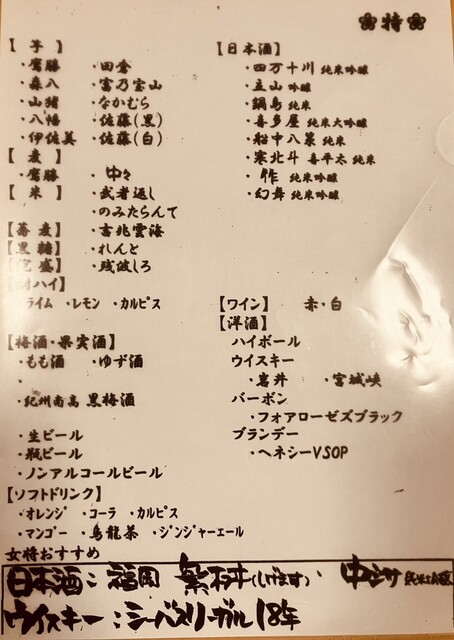 ❀特❀
【芋】
・田倉
・森八 ・富乃宝山
・山猪 ・なかむら
・八幡 ・佐藤(黒)
・伊佐美 ・佐藤(白)
【麦】
・中々
【米】 ・武者返し
・のみたらんて
【蕎麦】 ・吉兆雲海
【黒糖】 ・れんと
【泡盛】 ・残波しろ
酎ハイ】
ライム ・レモン ・カルピス
【梅酒・果実酒】
・もも酒 ・ゆず酒
・
・紀州南高 黒梅酒
・生ビール
・瓶ビール
・ノンアルコールビール
【ソフトドリンク】
・オレンジ ・コーラ ・カルピス
・マンゴー ・烏龍茶 ・ジンジャーエール
【日本酒】
・四万十川 純米吟醸
・立山 吟醸
・鍋島 純米
・喜多屋 純米大吟醸
・船中八策 純米
・寒北斗 喜平太 純米
・作 純米吟醸
・幻舞 純米吟醸
【ワイン】 赤・白
【洋酒】
ハイボール
ウイスキー
・岩井 ・宮城峡
バーボン
・フォアローゼズブラック
ブランデー
・ヘネシーVSOP
女将おすすめ
日本酒：福岡 繁桝(しげます)
ウイスキー：シーバスリーガル18年